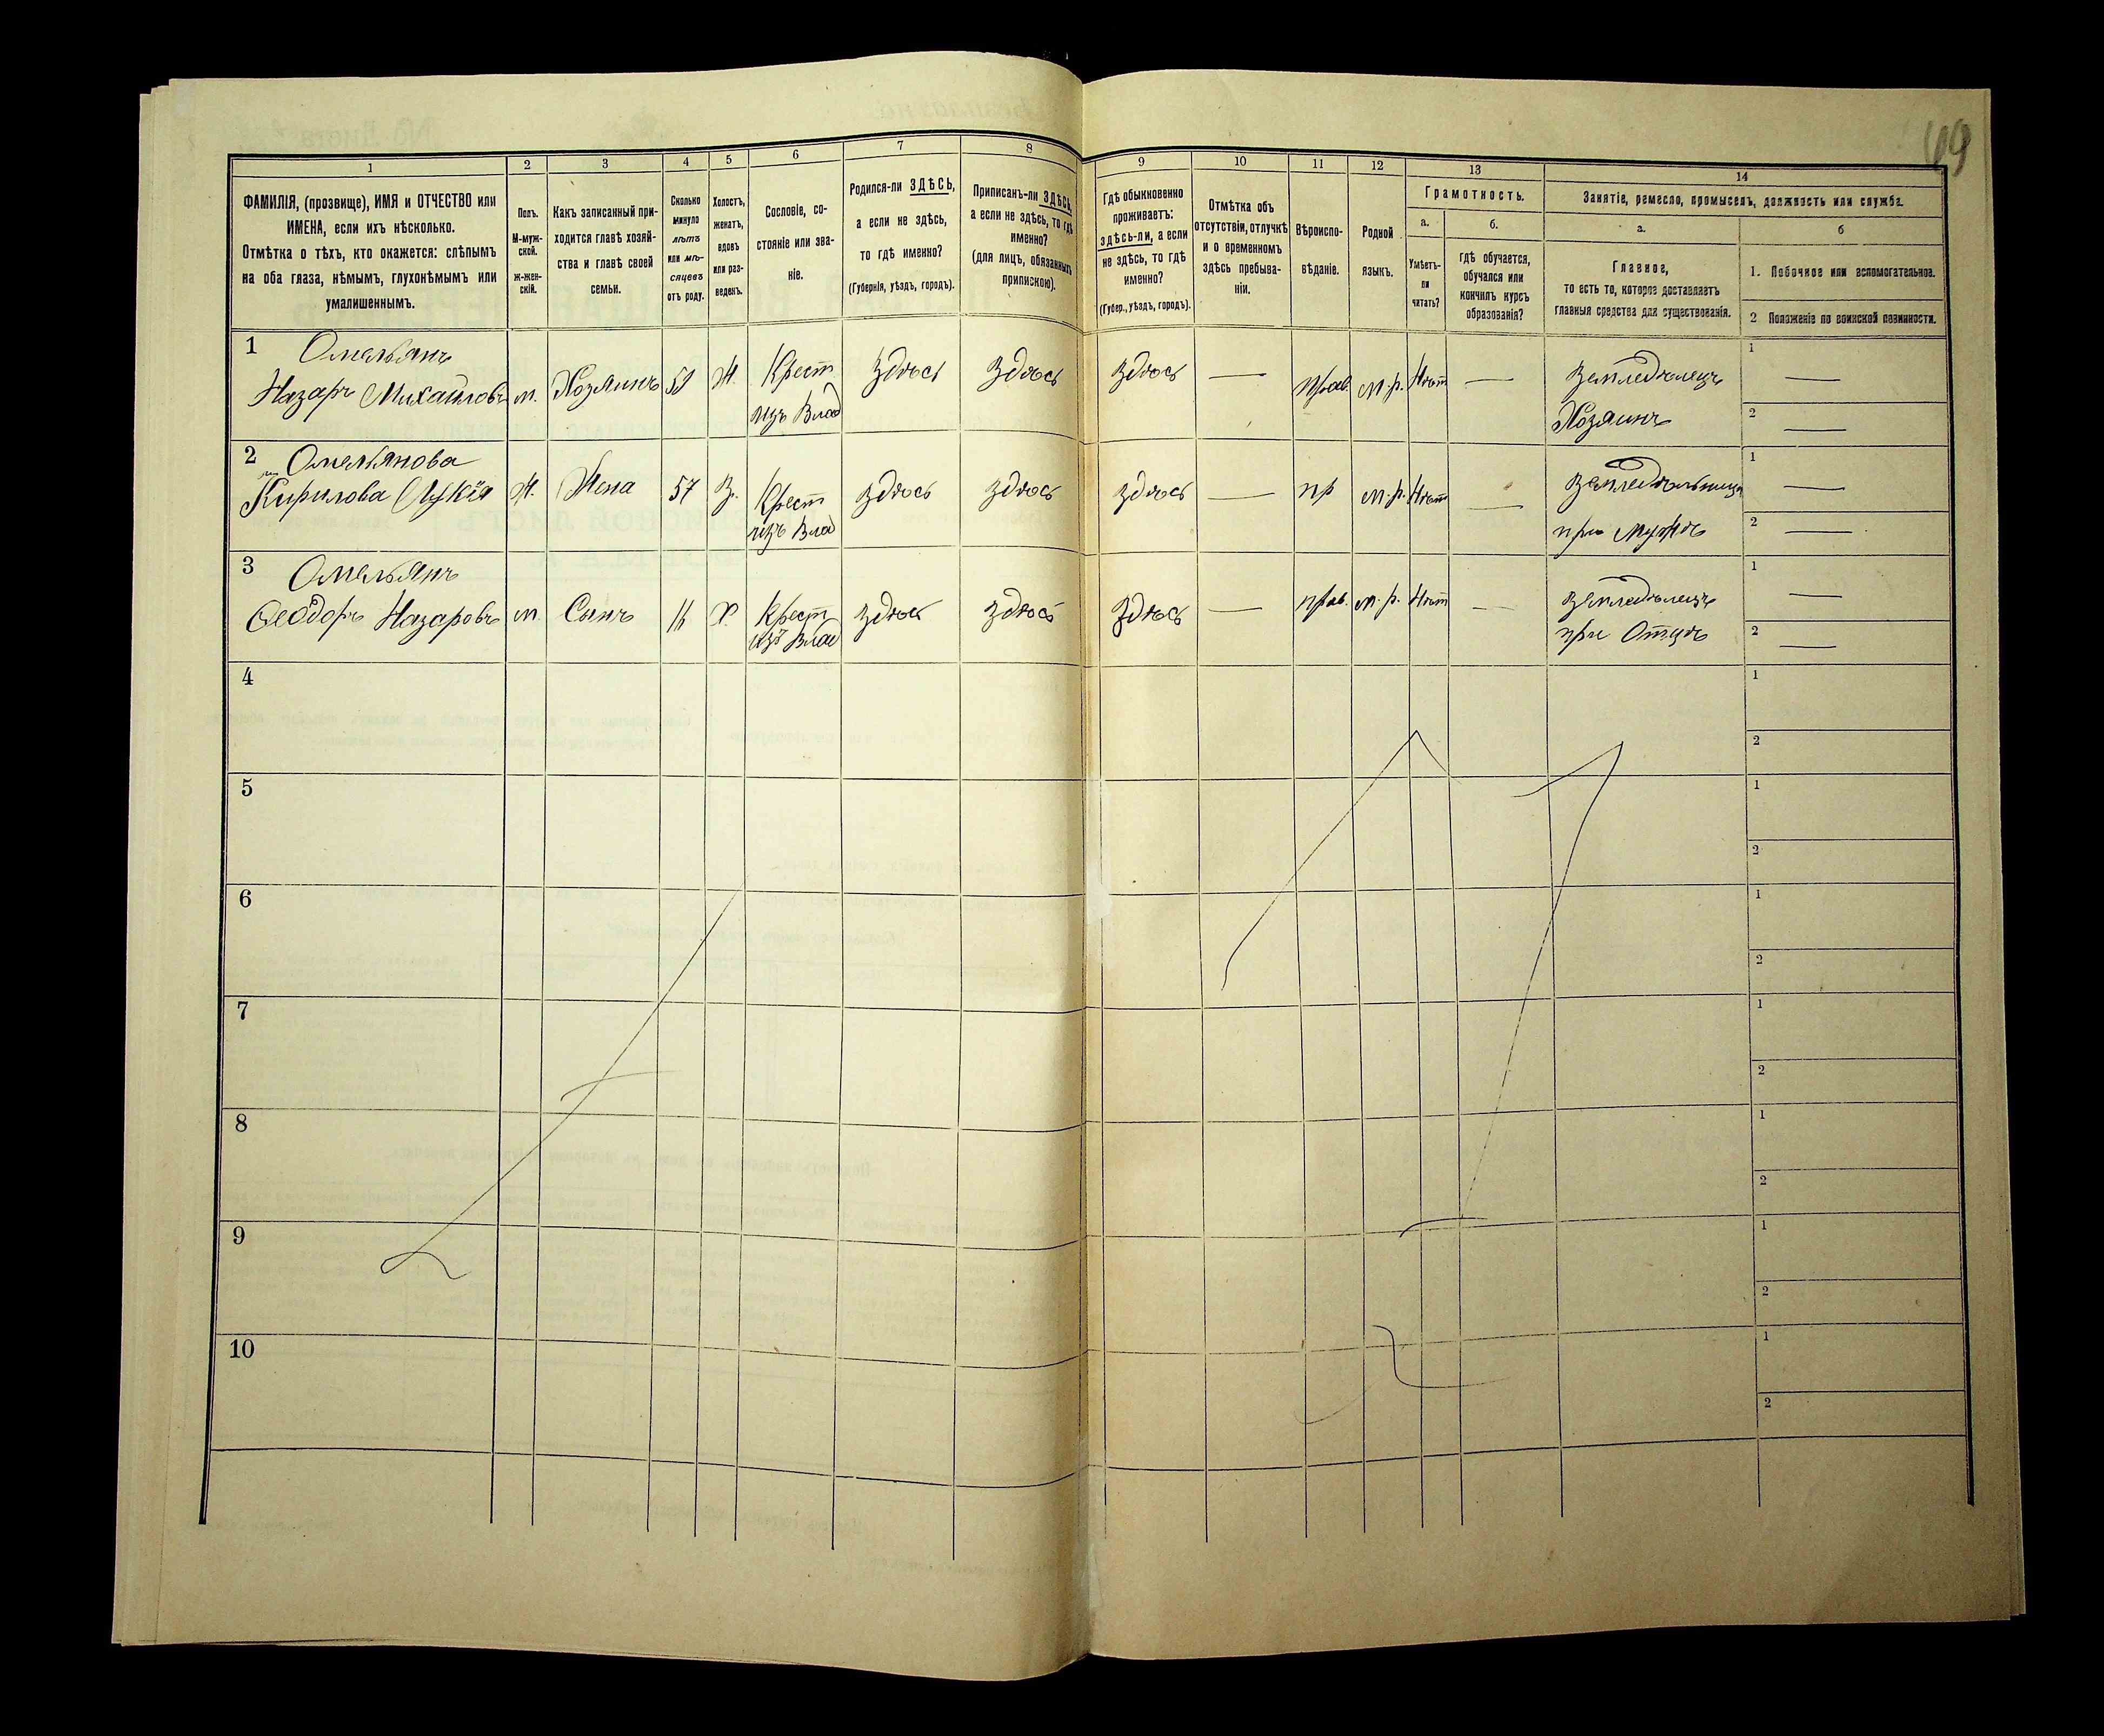 69
1 2 3 4 5 6 7 8 9 10 11 12 13 14
ФАМИЛІЯ, (прозвище), ИМЯ и ОТЧЕСТВО или
ИМЕНА, если ихъ нѣсколько.
Отмѣтка о тѣхъ, кто окажется: слѣпымъ
на оба глаза, нѣмымъ, глухонѣмымъ или
умалишеннымъ.
Полъ.
М-муж-
ской.
Ж-жен-
скій.
Какъ записанный при-
ходится главѣ хозяй-
ства и главѣ своей
семьи.
Сколько
минуло
лѣтъ
или мѣ-
сяцевъ
отъ роду.
Холостъ,
женатъ,
вдовъ
или раз-
веденъ.
Сословіе, со-
стояніе или зва-
ніе.
Родился-ли ЗДѢСЬ,
а если не здѣсь,
то гдѣ именно?
(Губернія, уѣздъ, городъ).
Приписанъ-ли ЗДѢСЬ,
а если не здѣсь, то гдѣ
именно?
(для лицъ, обязанныхъ
припискою).
Гдѣ обыкновенно
проживаетъ:
здѣсь-ли, а если
не здѣсь, то гдѣ
именно?
(Губер., уѣздъ, городъ).
Отмѣтка объ
отсутствіи, отлучкѣ
и о временномъ
здѣсь пребыва-
ніи.
Вѣроиспо-
вѣданіе.
Родной
языкъ.
Грамотность.
а.
Умѣетъ-
ли
читать?
б.
гдѣ обучается,
обучался или
кончилъ курсъ
образованія?
Занятіе, ремесло, промыселъ, должность или служба.
а.
Главное,
то есть то, которое доставляетъ
главныя средства для существованія.
б
1. Побочное или вспомогательное.
2 Положеніе по воинской повинности.
1 Омельянъ
Назаръ Михайловъ м. Хозяинъ Ж. Крест Здѣсь Здѣсь Здѣсь — прав. м.р. Нѣт — Земледѣлецъ 1 —
изъ Влад Хозяинъ 2 —
2 Омельянова
Кирилова Лукія Ж. Жена 57 З. Крест здѣсь здѣсь здѣсь — пр м.р. Нѣт — Земледѣльница 1 —
изъ Влад при Мужѣ 2 —
3 Омельянъ
Ѳеодоръ Назаровъ м Сынъ Х. Крест здѣсь здѣсь Здѣсь — прав. м.р. Нѣт — Земледѣлецъ 1 —
изъ Влад при Отцѣ 2 —
4 1
2
5 1
2
6 1
2
7 1
2
8 1
2
9 1
2
10 1
2